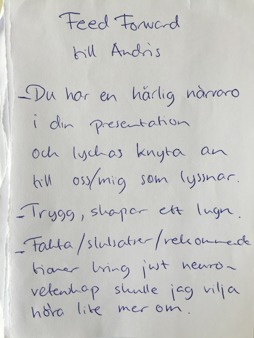 Feed Forward
till Andris
- Du har en härlig närvaro
i din presentation
och lyckas knyta an
till oss/mig som lyssnar.
- Trygg, skapar ett lugn.
- Fakta/slutsatser/rekommenda
tioner kring just neuro-
vetenskap skulle jag vilja
höra lite mer om.